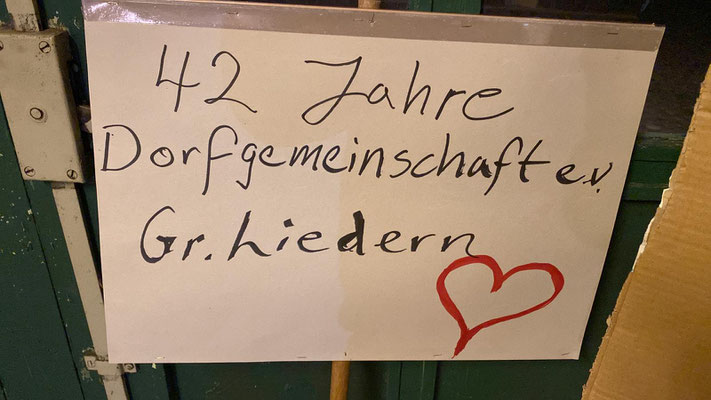 42 Jahre
Dorfgemeinschaft e.V.
Gr. Liedern